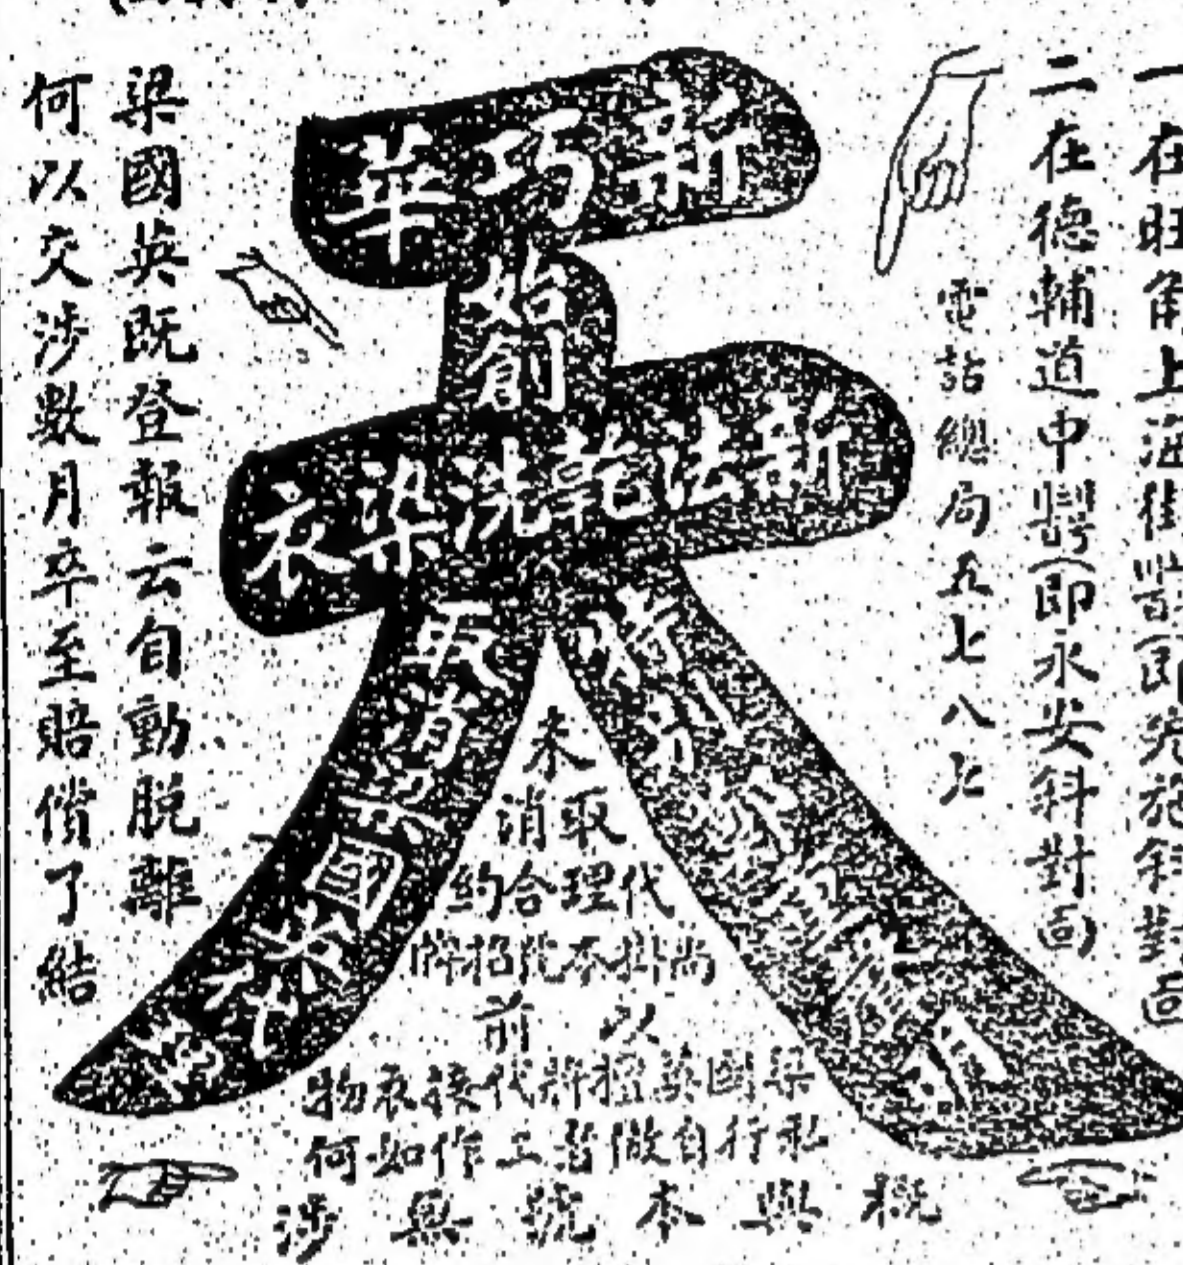 一在旺角上海街
二在德輔道中即永安斜對面
電話總局五七八七
新巧華
始創
新法乾洗染衣
特別
取消梁國英代
未
取消
代理合約
尚掛本號招牌
以前
梁國英擅將代接衣物
私行自做若工作如何
概與本號無涉
梁國英既登報云自動脫離
何以交涉數月卒至賠償了結